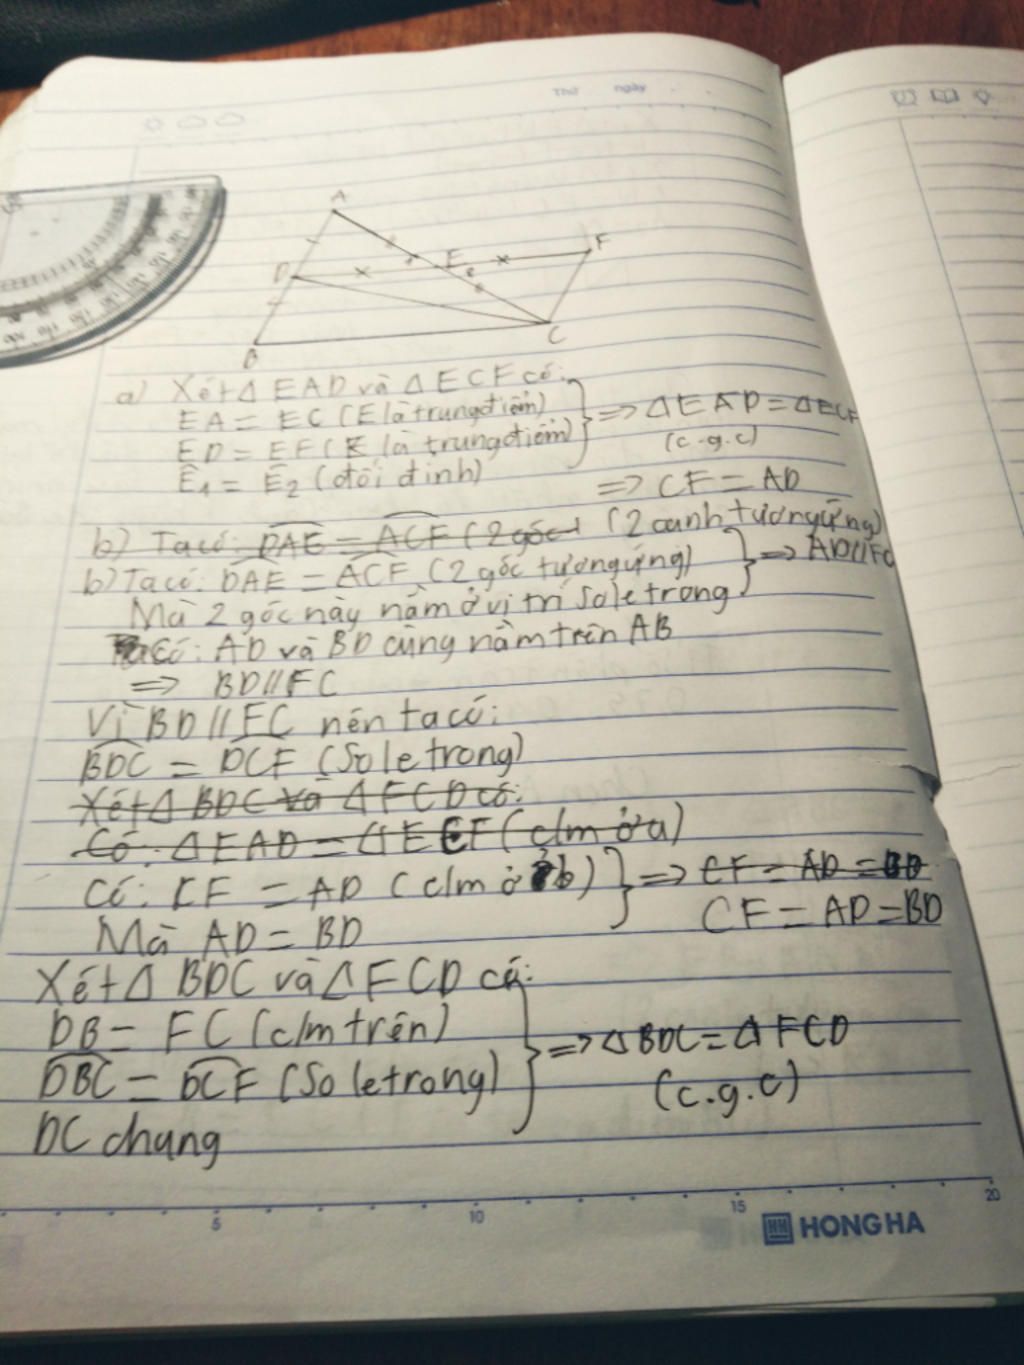 Thứ ngày
A
D E F
B C
a) Xét Δ EAD và Δ ECF có:
EA = EC (E là trung điểm)
ED = EF (E là trung điểm)
Ê1 = Ê2 (đối đỉnh)
=> Δ EAD = Δ ECF
(c.g.c)
=> CF = AD
(2 cạnh tương ứng)
b) Ta có: DAE = ACF (2 góc t
b) Ta có: DAE = ACF (2 góc tương ứng)
Mà 2 góc này nằm ở vị trí so le trong
=> AD//FC
Ta có: AD và BD cùng nằm trên AB
=> BD//FC
Vì BD//FC nên ta có:
BDC = DCF (So le trong)
Xét Δ BDC và Δ FCD có:
Có: Δ EAD = Δ ECF (c/m ở a)
Có: CF = AD (c/m ở b)
Mà AD = BD
=> CF = AD = BD
CF = AD = BD
Xét Δ BDC và Δ FCD có:
DB = FC (c/m trên)
DBC = DCF (So le trong)
DC chung
=> Δ BDC = Δ FCD
(c.g.c)
5 10 15 20
HH HONG HA